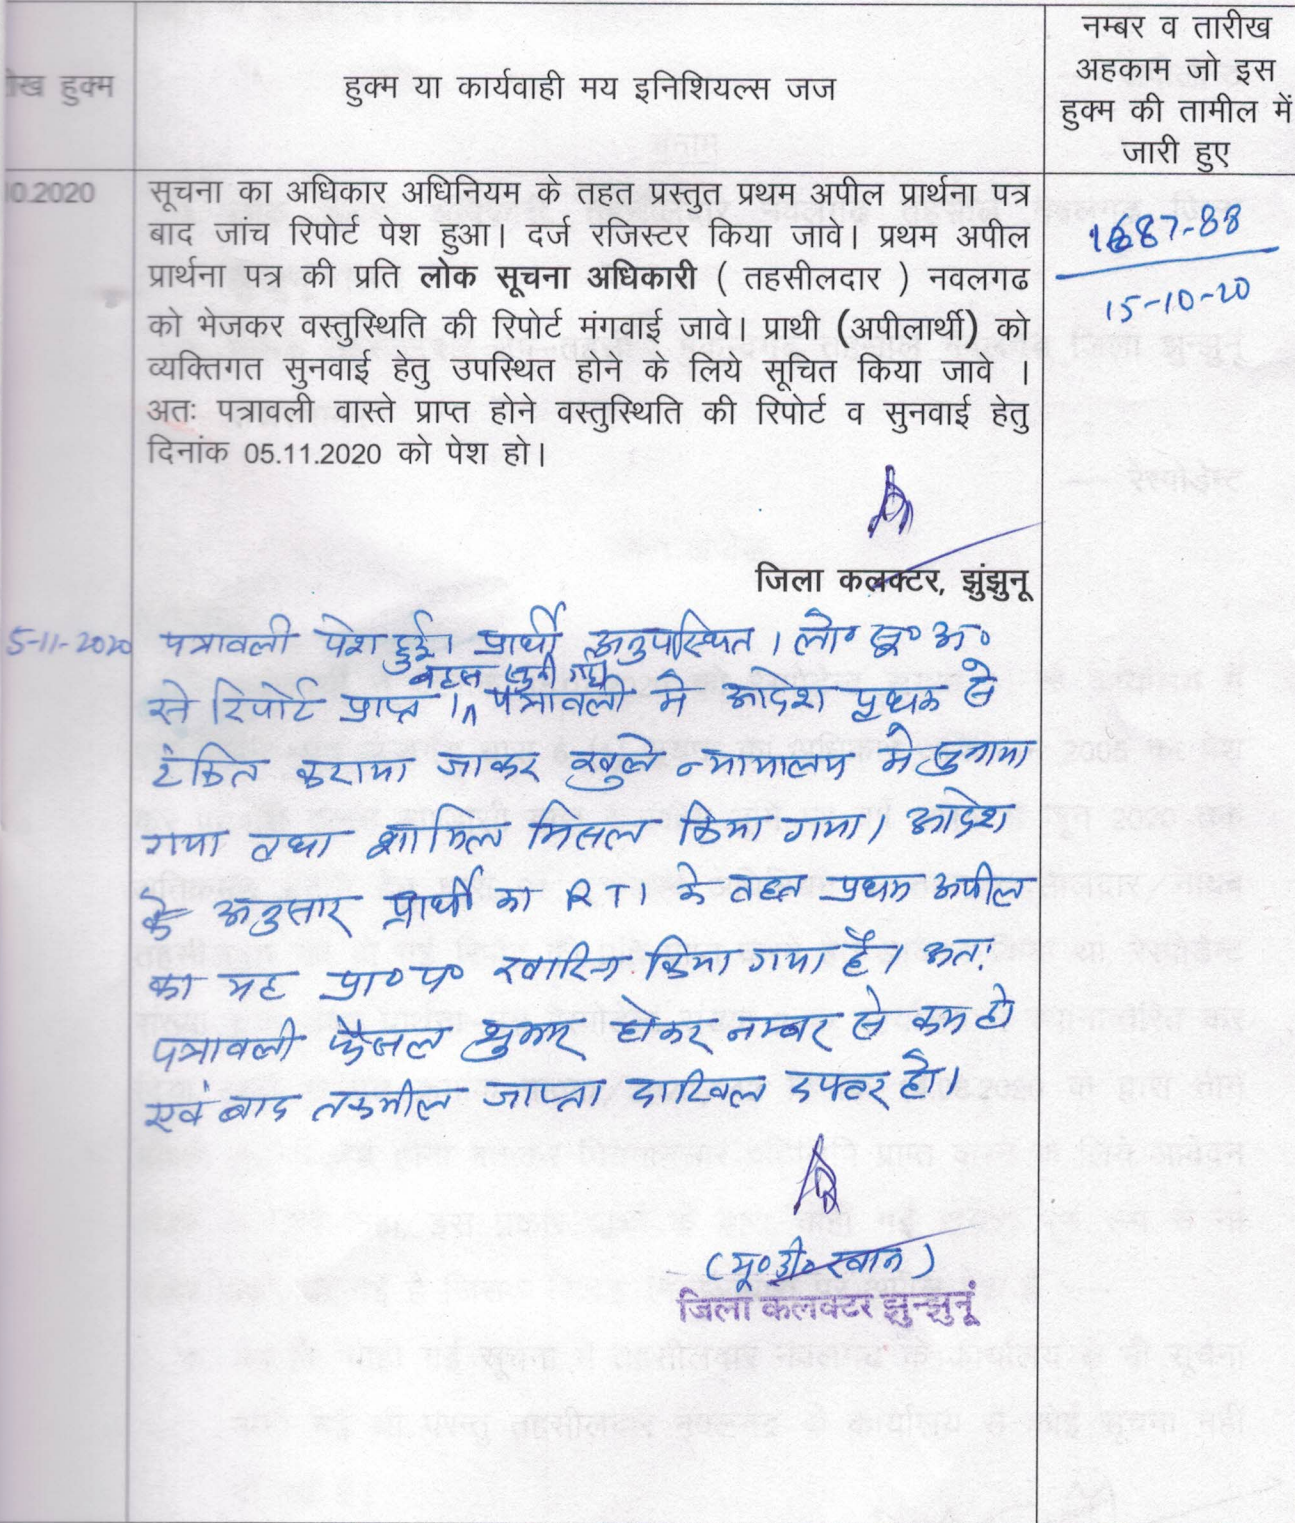 हुक्म
हुक्म या कार्यवाही मय इनिशियल्स जज
नम्बर व तारीख
अहकाम जो इस
हुक्म की तामील में
जारी हुए
0.2020
सूचना का अधिकार अधिनियम के तहत प्रस्तुत प्रथम अपील प्रार्थना पत्र
बाद जांच रिपोर्ट पेश हुआ। दर्ज रजिस्टर किया जावे। प्रथम अपील
प्रार्थना पत्र की प्रति लोक सूचना अधिकारी ( तहसीलदार ) नवलगढ
को भेजकर वस्तुस्थिति की रिपोर्ट मंगवाई जावे। प्राथी (अपीलार्थी) को
व्यक्तिगत सुनवाई हेतु उपस्थित होने के लिये सूचित किया जावे ।
अतः पत्रावली वास्ते प्राप्त होने वस्तुस्थिति की रिपोर्ट व सुनवाई हेतु
दिनांक 05.11.2020 को पेश हो।
1687-88
15-10-20
जिला कलक्टर, झुंझुनू
5-11-2020
पत्रावली पेश हुई। प्रार्थी अनुपस्थित। लो० सू० अ०
बहस सुनी गयी
से रिपोर्ट प्राप्त। पत्रावली मे आदेश पृथक से
टंकित कराया जाकर खुले न्यायालय मे सुनाया
गया तथा शामिल मिसल किया गया। आदेश
के अनुसार प्रार्थी का RTI के तहत प्रथम अपील
का यह प्रा० प० खारिज किया गया है। अतः
पत्रावली फैसल शुमार होकर नम्बर से कम हो
एवं बाद तकमील जाप्ता दाखिल दफ्तर हो।
(यू० डी० खान)
जिला कलक्टर झुन्झुनूं